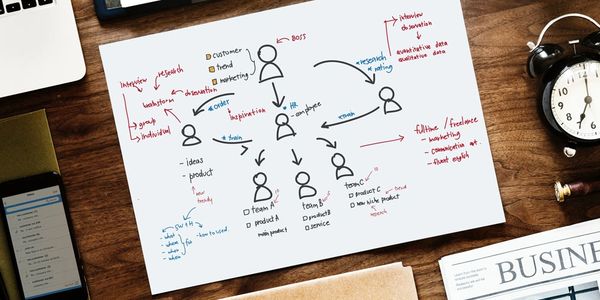 BOSS
customer
trend
marketing
interview
observation
quantitative data
qualitative data
*research
*rating
interview
research
brainstorm
observation
group
individual
*order
inspiration
*HR
employee
* train
- ideas
- product
fulltime / freelance
- marketing
- communication
- fluent english
team A
product A
main product
team B
product B
service
team C
product C
new niche product
research
5W1H
- what
- where
- when
how to used
BUSINE
12